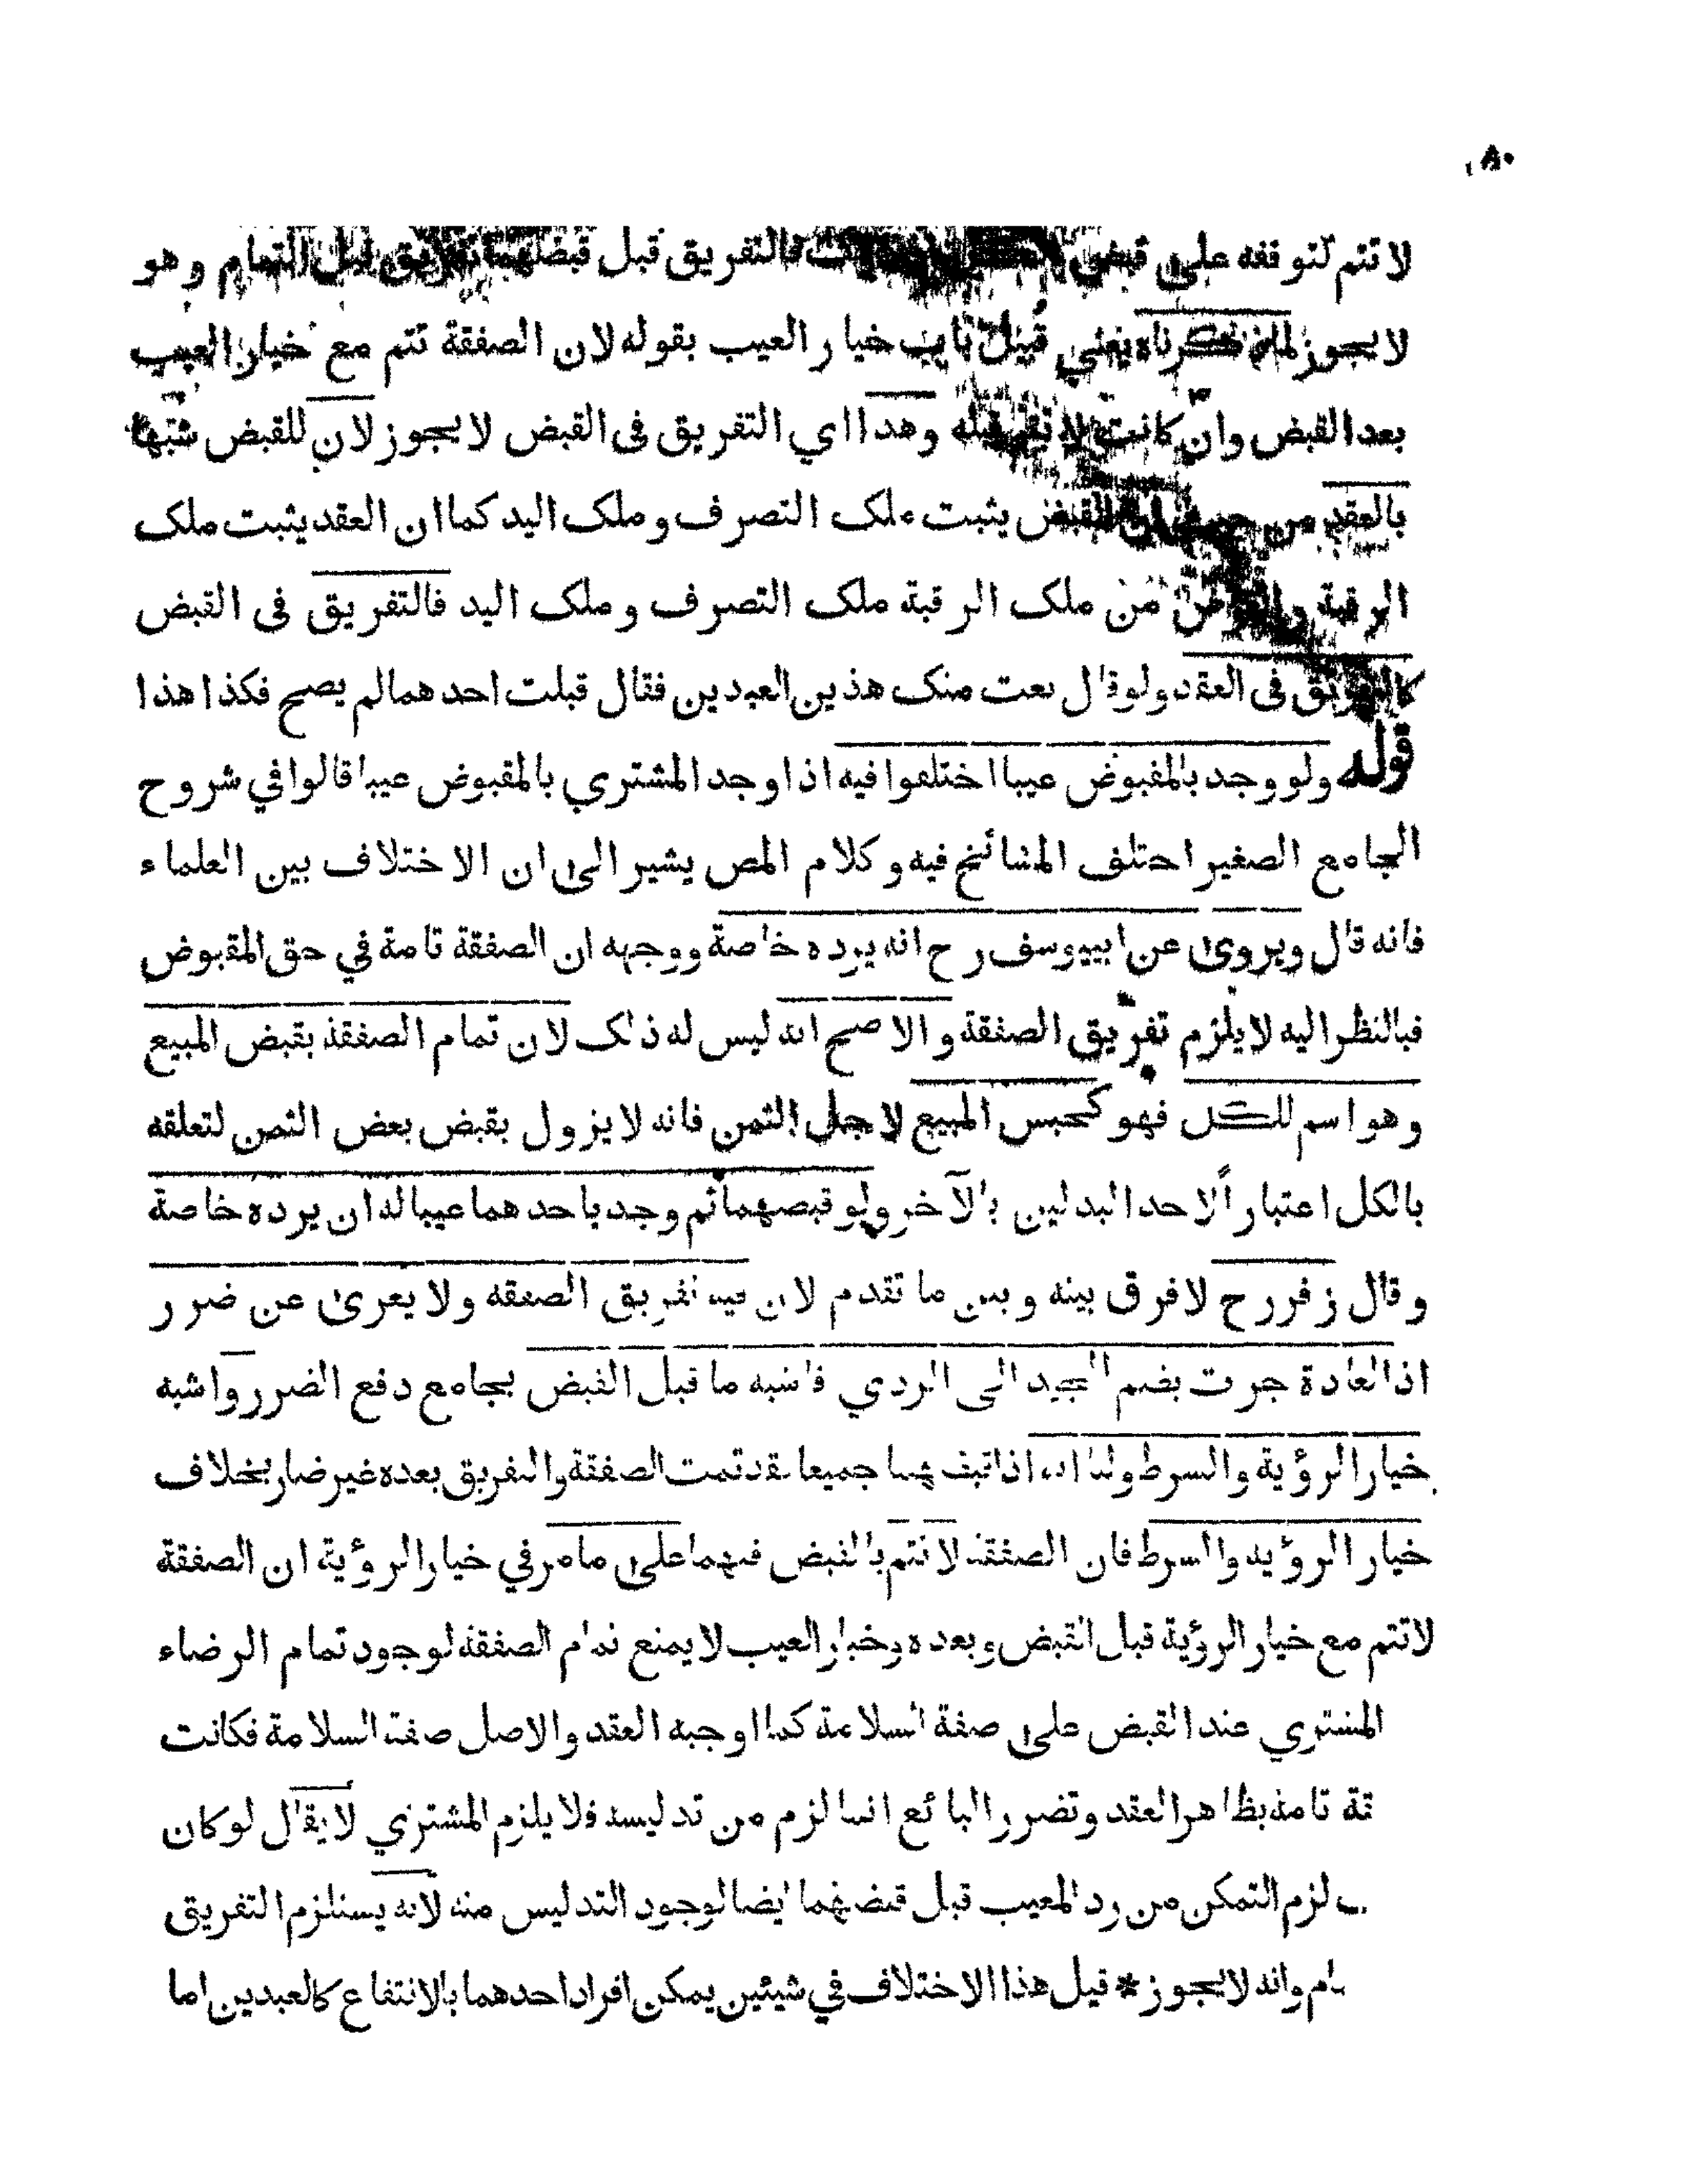 ٨٠
لا تتم لتوقفه على قبض فالتفريق قبل قبضهما تفريق قبل التمام وهو
لا يجوز لما ذكرناه يعني قبيل باب خيار العيب بقوله لان الصفقة تتم مع خيار العيب
بعد القبض وان كانت لا تتم قبله وهذا اي التفريق فى القبض لا يجوز لان للقبض شبها
بالعقد من حيث ان القبض يثبت ملك التصرف وملك اليد كما ان العقد يثبت ملك
الرقبة والغرض من ملك الرقبة ملك التصرف وملك اليد فالتفريق فى القبض
كالتفريق فى العقد ولو قال بعت منك هذين العبدين فقال قبلت احدهما لم يصح فكذا هذا
قوله ولو وجد بالمقبوض عيبا اختلفوا فيه اذا وجد المشتري بالمقبوض عيبا قالوا في شروح
الجامع الصغير اختلف المشائخ فيه وكلام المص يشير الى ان الاختلاف بين العلماء
فانه قال ويروى عن ابييوسف رح انه يرده خاصة ووجهه ان الصفقة تامة في حق المقبوض
فبالنظر اليه لا يلزم تفريق الصفقة والاصح انه ليس له ذلك لان تمام الصفقة بقبض المبيع
وهو اسم للكل فهو كحبس المبيع لاجل الثمن فانه لا يزول بقبض بعض الثمن لتعلقه
بالكل اعتباراً لاحد البدلين بالآخر ولو قبضهما ثم وجد باحدهما عيبا له ان يرده خاصة
وقال زفر رح لا فرق بينه وبين ما تقدم لان فيه تفريق الصفقه ولا يعرى عن ضرر
اذ العادة جرت بضم الجيد الى الردي فاشبه ما قبل القبض بجامع دفع الضرر واشبه
خيار الرؤية والشرط ولنا انه اذا قبضهما جميعا فقد تمت الصفقة والتفريق بعده غير ضار بخلاف
خيار الرؤية والشرط فان الصفقة لا تتم بالقبض فيهما على ما مر في خيار الرؤية ان الصفقة
لا تتم مع خيار الرؤية قبل القبض وبعده وخيار العيب لا يمنع تمام الصفقة لوجود تمام الرضاء
المشتري عند القبض على صفة السلامة كما اوجبه العقد والاصل صفة السلامة فكانت
قة تامة بظاهر العقد وتضرر البائع انما لزم من تدليسه فلا يلزم المشتري لا يقال لو كان
لزم التمكن من رد المعيب قبل قبضهما ايضا لوجود التدليس منه لانه يستلزم التفريق
ام وانه لا يجوز * قيل هذا الاختلاف في شيئين يمكن افراد احدهما بالانتفاع كالعبدين اما